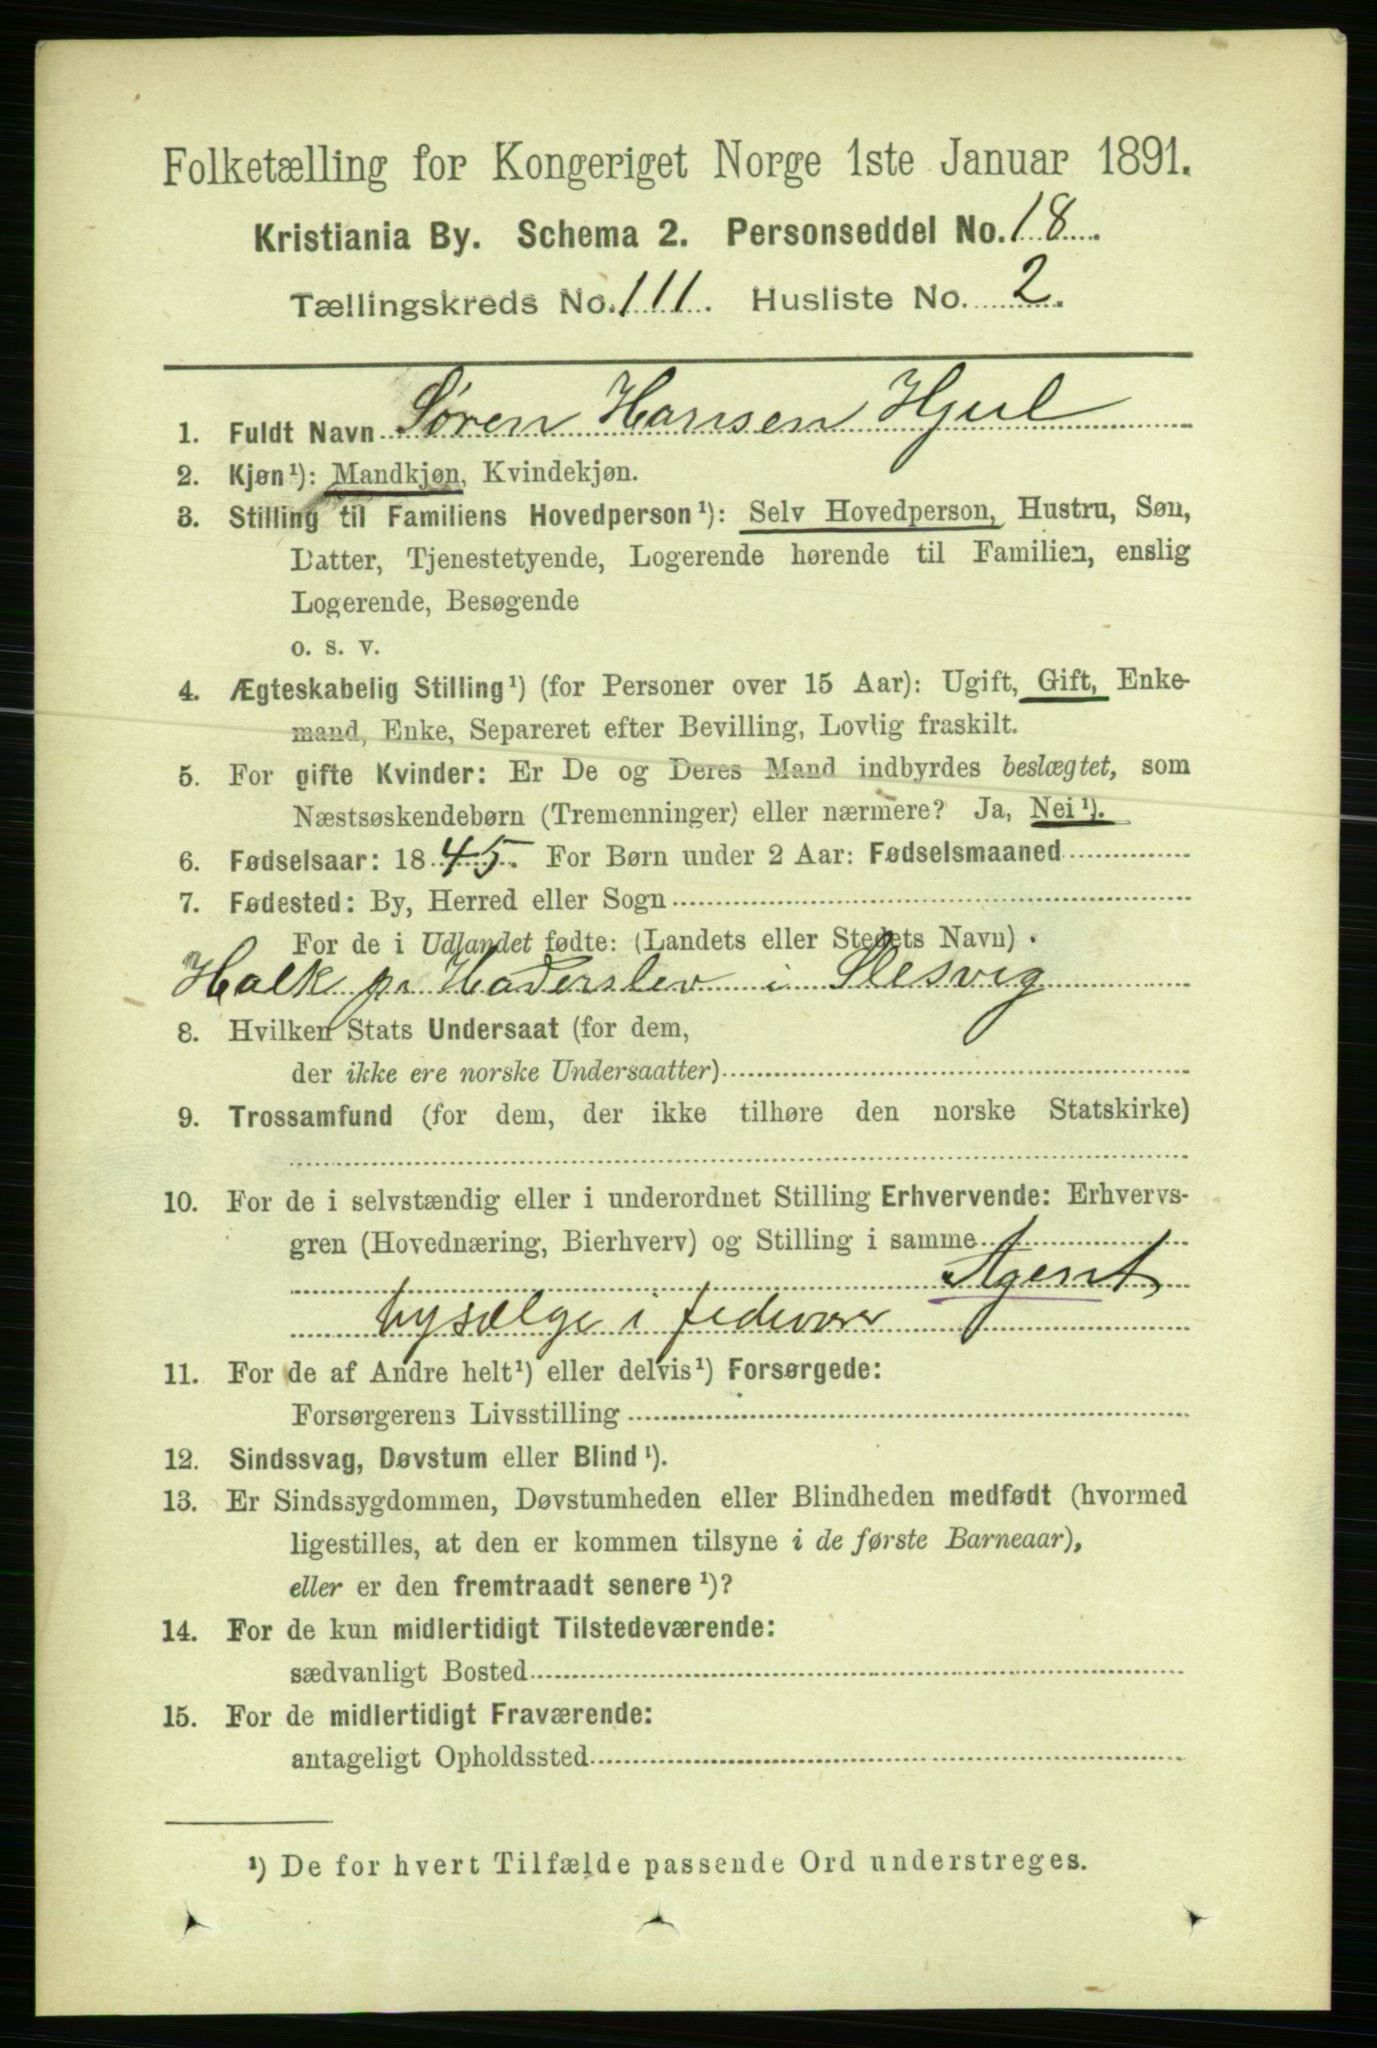 Folketælling for Kongeriget Norge 1ste Januar 1891.
Kristiania By. Schema 2. Personseddel No. 18.
Tællingskreds No. 111. Husliste No. 2.
1. Fuldt Navn Søren Hansen Hjul
2. Kjøn¹): Mandkjøn, Kvindekjøn.
3. Stilling til Familiens Hovedperson¹): Selv Hovedperson, Hustru, Søn,
Datter, Tjenestetyende, Logerende hørende til Familien, enslig
Logerende, Besøgende
o. s. v.
4. Ægteskabelig Stilling¹) (for Personer over 15 Aar): Ugift, Gift, Enke-
mand, Enke, Separeret efter Bevilling, Lovlig fraskilt.
5. For gifte Kvinder: Er De og Deres Mand indbyrdes beslægtet, som
Næstsøskendebørn (Tremenninger) eller nærmere? Ja, Nei¹).
6. Fødselsaar: 1845. For Børn under 2 Aar: Fødselsmaaned
7. Fødested: By, Herred eller Sogn
For de i Udlandet fødte: (Landets eller Stedets Navn)
Halk pr Haderslev i Slesvig
8. Hvilken Stats Undersaat (for dem,
der ikke ere norske Undersaatter)
9. Trossamfund (for dem, der ikke tilhøre den norske Statskirke)
10. For de i selvstændig eller i underordnet Stilling Erhvervende: Erhvervs-
gren (Hovednæring, Bierhverv) og Stilling i samme
Agent
bysælge i fedevarer
11. For de af Andre helt¹) eller delvis¹) Forsørgede:
Forsørgerens Livsstilling
12. Sindssvag, Døvstum eller Blind¹).
13. Er Sindssygdommen, Døvstumheden eller Blindheden medfødt (hvormed
ligestilles, at den er kommen tilsyne i de første Barneaar),
eller er den fremtraadt senere¹)?
14. For de kun midlertidigt Tilstedeværende:
sædvanligt Bosted
15. For de midlertidigt Fraværende:
antageligt Opholdssted
¹) De for hvert Tilfælde passende Ord understreges.